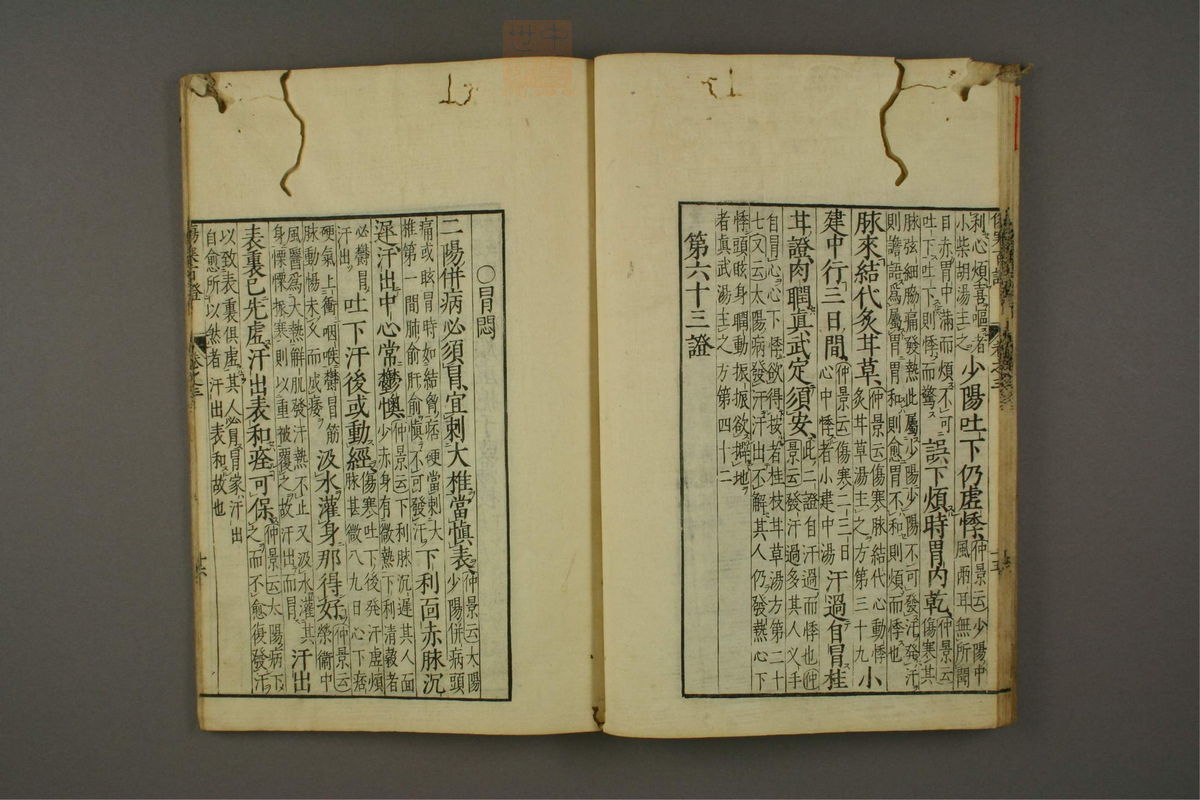 利心煩喜嘔者
小柴胡湯主之
少陽吐下仍虛悸
仲景云少陽中
風兩耳無所聞
目赤胷中滿而煩不可
吐下吐下則悸而驚
誤下煩時胃內乾
仲景云
傷寒其
脉弦細脇痛發熱此屬少陽少陽不可發汗發汗
則譫語爲屬胃胃和則愈胃不和則煩而悸也
脉來結代炙甘草
仲景云傷寒脉結代心動悸
炙甘草湯主之方第三十九
小
建中行三日間
仲景云傷寒二三日
心中悸者小建中湯
汗過自冒桂
甘證肉瞤眞武定須安
此二證自汗過而悸也仲
景云發汗過多其人义手
自冒心心下悸欲得按者桂枝甘草湯方第二十
七又云太陽病發汗汗出不解其人仍發熱心下
悸頭眩身瞤動振振欲擗地
者眞武湯主之方第四十二
第六十三證
○冒悶
二陽併病必須冒宜刺大椎當慎表
仲景云太陽
少陽併病頭
痛或眩冒時如結胷痞硬當刺大
椎第一間肺俞肝俞慎不可發汗
下利面赤脉沉
遲汗出中心常鬱懊
仲景云下利脉沉遲其人面
少赤身有微熱下利清穀者
必鬱冒
汗出
吐下汗後或動經
傷寒吐下後発汗虛煩
脉甚微八九日心下痞
硬氣上衝咽喉鬱冒筋
脉動惕未久而成痿
汲水灌身那得好
仲景云
榮衛中
風醫爲大熱解肌發汗熱不止又汲水灌其
身慄慄振寒則以重被覆之故汗出而冒
汗出
表裏已先虛汗出表和痊可保
仲景云太陽病下
之而不愈復發汗
以致表裏俱虛其人必冒冒家汗出
自愈所以然者汗出表和故也